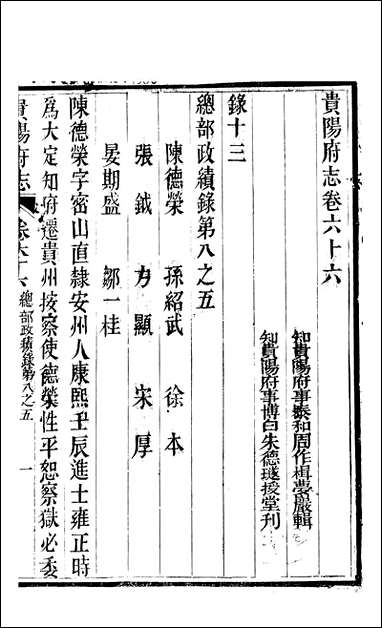 貴陽府志卷六十六
知貴陽府事泰和周作楫夢巖輯
知貴陽府事博白朱德璲綬堂刊
錄十三
總部政績錄第八之五
陳德榮 孫紹武 徐本
張鉞 方顯 宋厚
晏期盛 鄒一桂
陳德榮字密山直隸安州人康熙壬辰進士雍正時
為大定知府遷貴州按察使德榮性平恕察獄必委
貴陽府志 卷六十六 總部政績錄第八之五 一